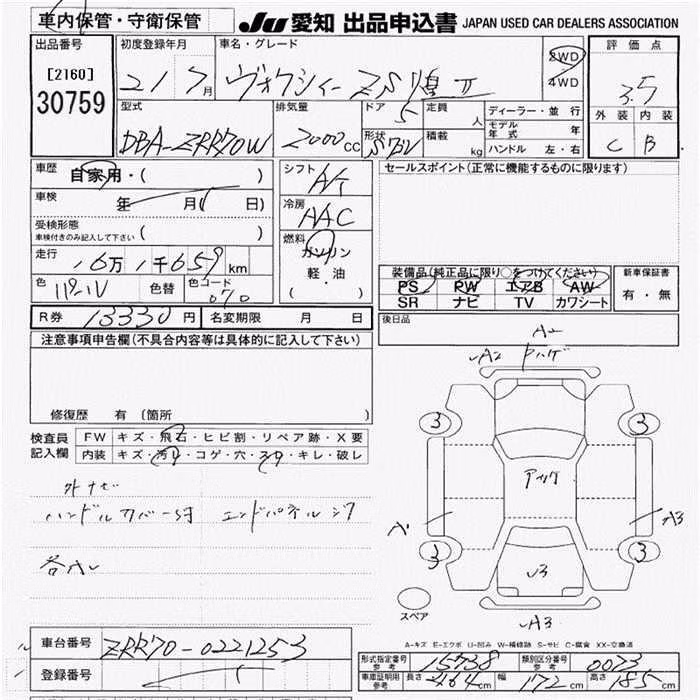 車内保管・守衛保管
JU 愛知 出品申込書 JAPAN USED CAR DEALERS ASSOCIATION
出品番号 [2160] 30759
初度登録年月 21 7月
車名・グレード ヴォクシィー ZS 煌 II
2WD
4WD
評価点 3.5
外装 内装
C B
型式 DBA-ZRR70W
排気量 2000cc
ドア 5
形状 S7BV
定員 人
積載 kg
ディーラー・並行
モデル年式 年
ハンドル 左・右
車歴 自家用・( )
車検 年 月( 日)
受検形態 ( )
車検付きのみ記入して下さい
走行 16万1千659km
色 パールV 色替 色コード 070
シフト A/t
冷房 AAC
燃料 ガソリン
軽・油
( )
セールスポイント(正常に機能するものに限ります)
装備品(純正品に限り○をつけてください)
PS PW エアB AW
SR ナビ TV カワシート
新車保証書
有・無
R券 13330円 名変期限 月 日
後日品
注意事項申告欄(不具合内容等は具体的に記入して下さい)
修復歴 有 (箇所 )
検査員記入欄
FW キズ・飛石・ヒビ割・リペア跡・X要
内装 キズ・汚れ・コゲ・穴・スレ・キレ・破レ
ハンドルカバー付 エンドパネル
A2
A2
3 3
A3
3 3
A3
スペア
A-キズ E-エクボ U-凹み W-補修跡 S-サビ C-腐食 XX-交換済
車台番号 ZRR70-0221253
登録番号
形式指定番号 参考 15738 類別区分番号 参考 0073
車庫証明用 参考 長さ 464cm 幅 172cm 高さ 185cm